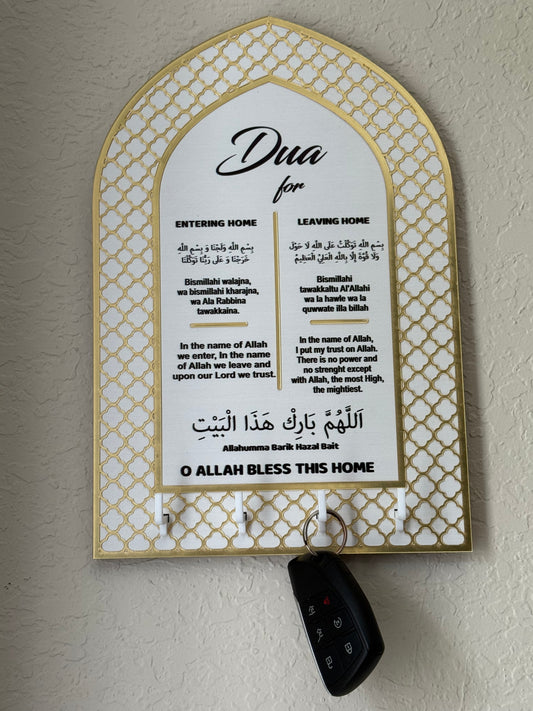 Dua
for
ENTERING HOME
بِسْمِ اللَّهِ وَلَجْنَا وَ بِسْمِ اللَّهِ
خَرَجْنَا وَ عَلَى رَبِّنَا تَوَكَّلْنَا
Bismillahi walajna,
wa bismillahi kharajna,
wa Ala Rabbina
tawakkaina.
In the name of Allah
we enter, In the name
of Allah we leave and
upon our Lord we trust.
LEAVING HOME
بِسْمِ اللَّهِ تَوَكَّلْتُ عَلَى اللَّهِ لَا حَوْلَ
وَلَا قُوَّةَ إِلَّا بِاللَّهِ الْعَلِيِّ الْعَظِيمِ
Bismillahi
tawakkaltu Al'Allahi
wa la hawle wa la
quwwate illa billah
In the name of Allah,
I put my trust on Allah.
There is no power and
no strenght except
with Allah, the most High,
the mightiest.
اَللَّهُمَّ بَارِكْ هَذَا الْبَيْتِ
Allahumma Barik Hazal Bait
O ALLAH BLESS THIS HOME